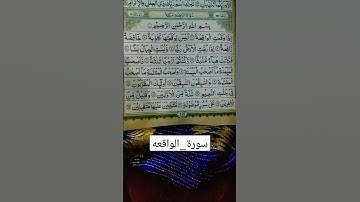 تَبَارَكَ اسْمُ رَبِّكَ ذِي الْجَلَالِ وَالْإِكْرَامِ
بِسْمِ اللَّهِ الرَّحْمَٰنِ الرَّحِيمِ
إِذَا وَقَعَتِ الْوَاقِعَةُ لَيْسَ لِوَقْعَتِهَا كَاذِبَةٌ خَافِضَةٌ
رَافِعَةٌ إِذَا رُجَّتِ الْأَرْضُ رَجًّا وَبُسَّتِ الْجِبَالُ بَسًّا
فَكَانَتْ هَبَاءً مُنْبَثًّا وَكُنْتُمْ أَزْوَاجًا ثَلَاثَةً فَأَصْحَابُ
الْمَيْمَنَةِ مَا أَصْحَابُ الْمَيْمَنَةِ وَأَصْحَابُ الْمَشْأَمَةِ مَا أَصْحَابُ
الْمَشْأَمَةِ وَالسَّابِقُونَ السَّابِقُونَ أُولَٰئِكَ الْمُقَرَّبُونَ
فِي جَنَّاتِ النَّعِيمِ ثُلَّةٌ مِنَ الْأَوَّلِينَ وَقَلِيلٌ مِنَ
الْآخِرِينَ عَلَىٰ سُرُرٍ مَوْضُونَةٍ مُتَّكِئِينَ عَلَيْهَا مُتَقَابِلِينَ
سورة_الواقعه